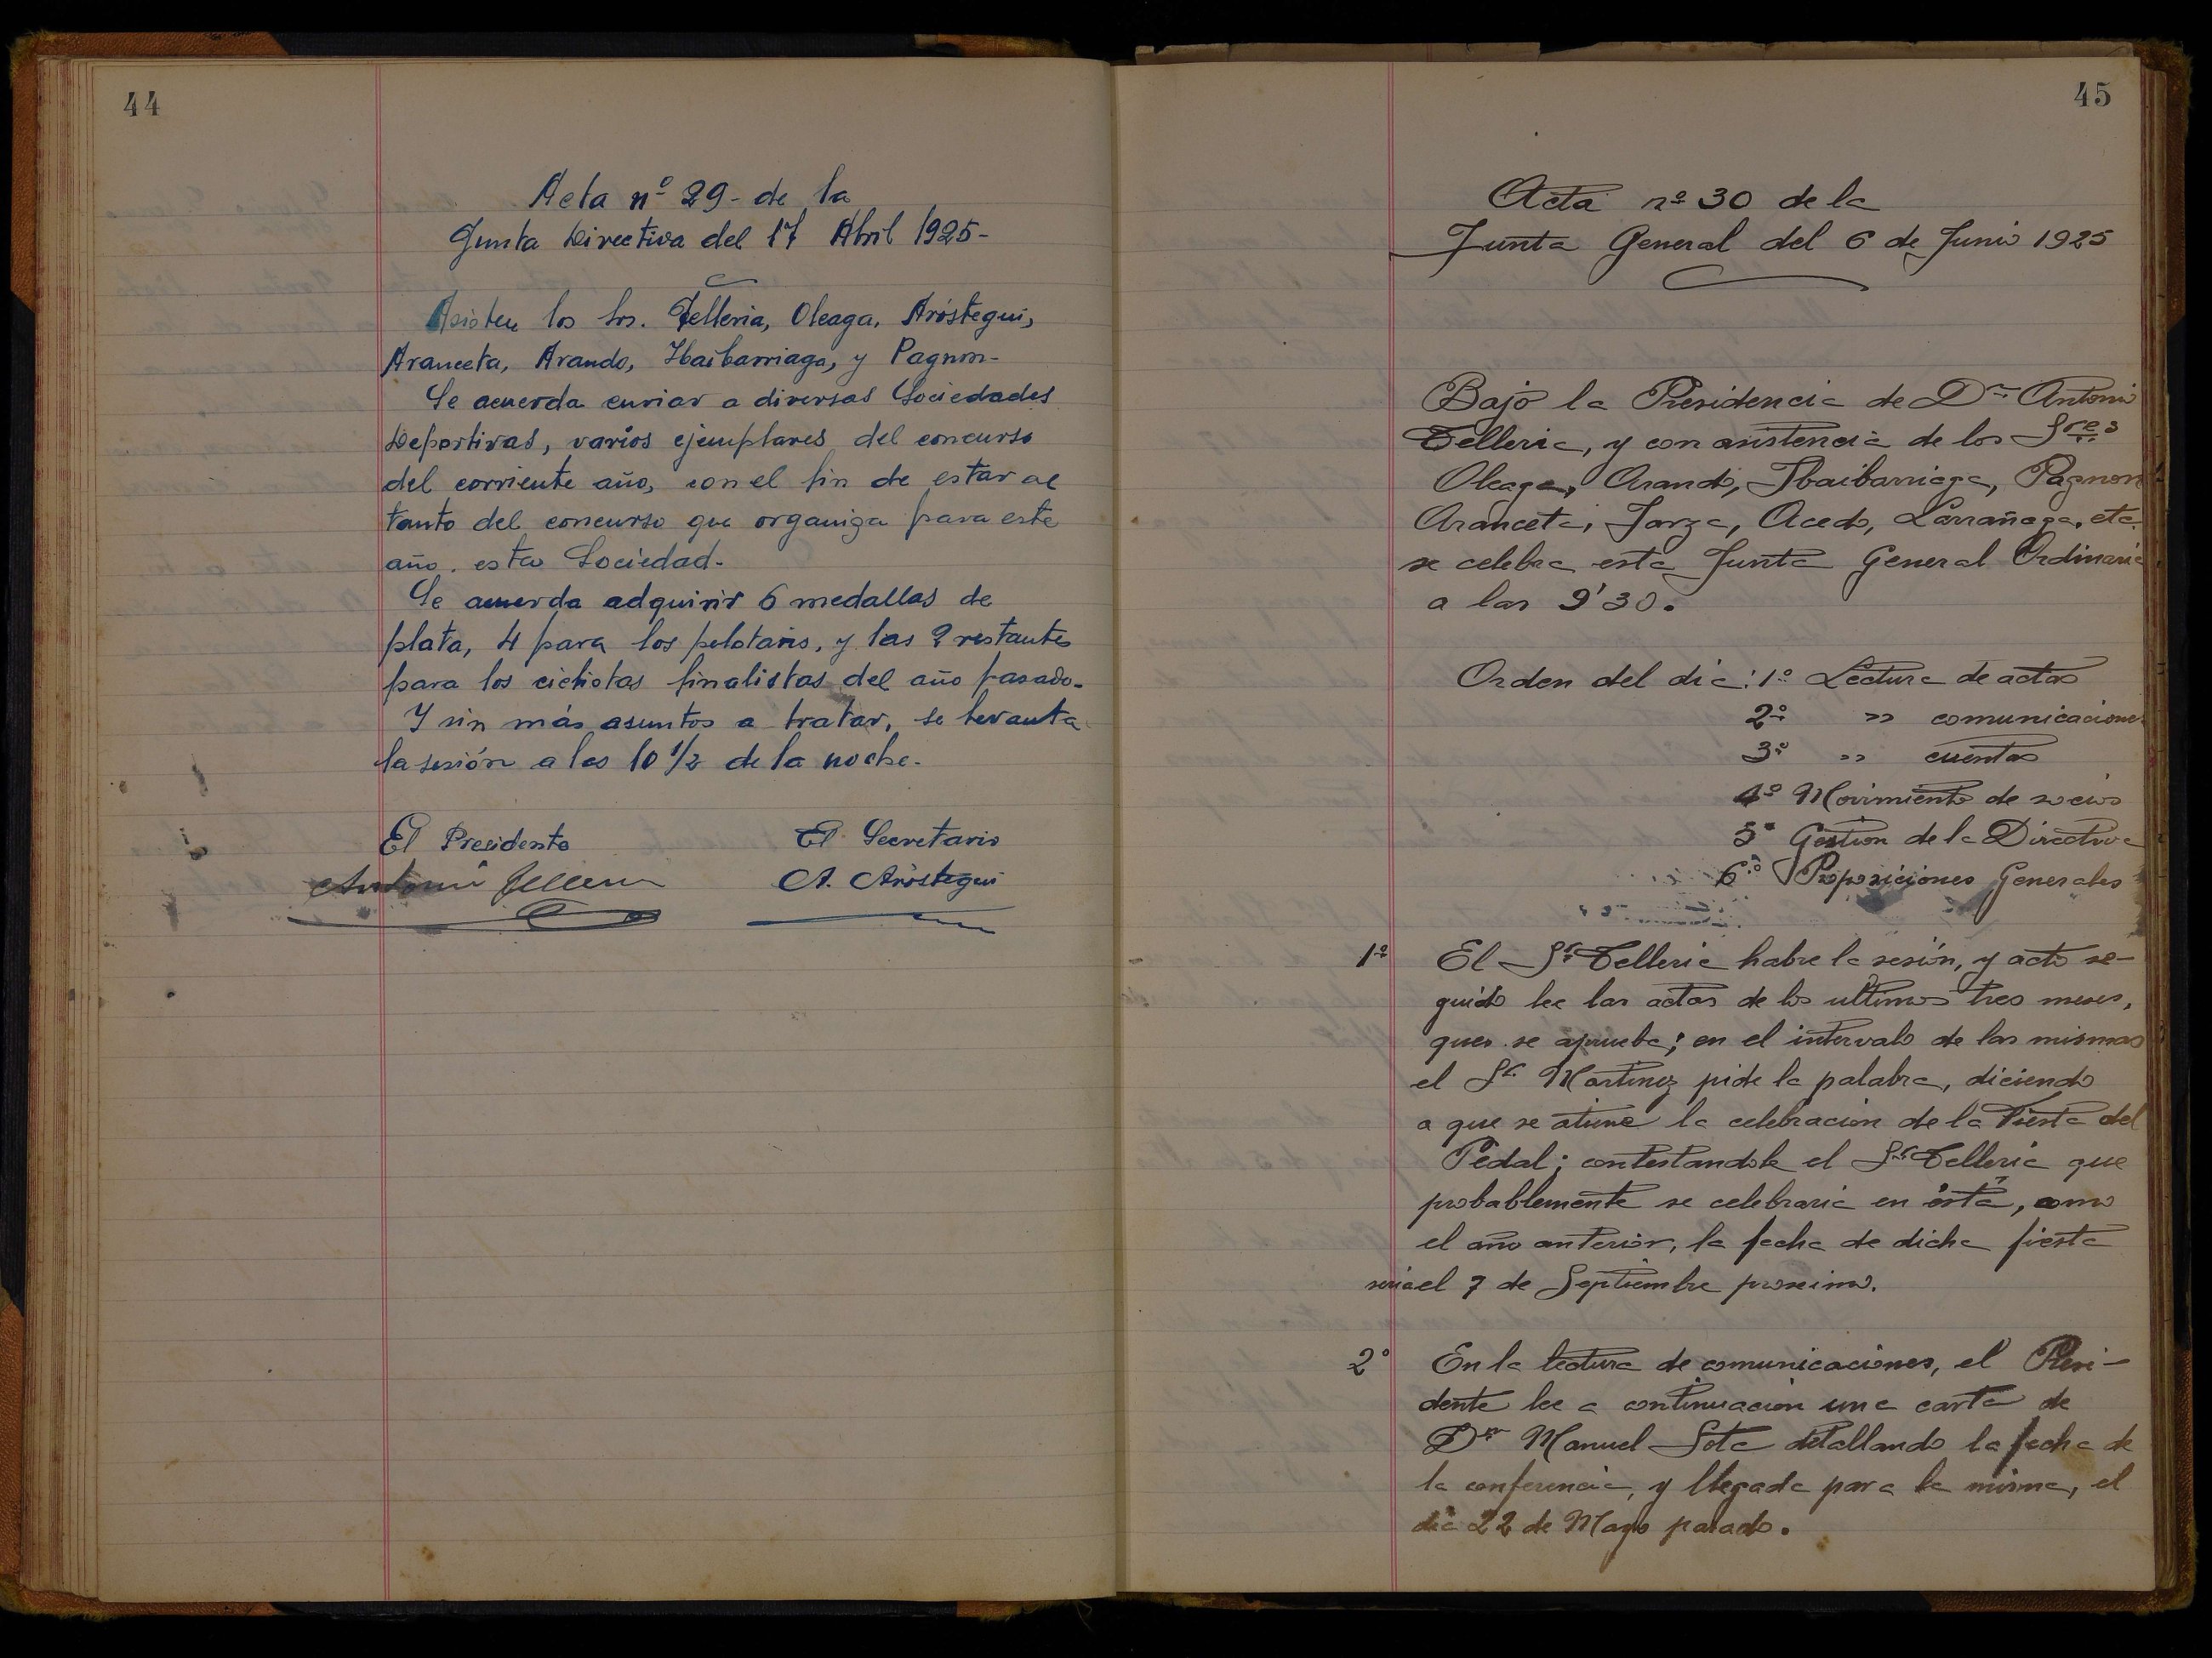 44
Acta nº 29- de la
Junta Directiva del 17 Abril 1925-
Asisten los Srs. Telleria, Oleaga, Aróstegui,
Aranceta, Arando, Ibaibarriaga, y Pagnon-
Se acuerda enviar a diversas Sociedades
Deportivas, varios ejemplares del concurso
del corriente año, con el fin de estar al
tanto del concurso que organiza para este
año. esta Sociedad.
Se acuerda adquirir 6 medallas de
plata, 4 para los pelotaris, y las 2 restantes
para los ciclistas finalistas del año pasado.
Y sin más asuntos a tratar, se levanta
la sesión a las 10 1/2 de la noche.
El Presidente El Secretario
Antonio Telleria A. Aróstegui
45
Acta nº 30 de la
Junta General del 6 de Junio 1925
Bajo la Presidencia de Dn Antonio
Telleria, y con asistencia de los Sres
Oleaga, Arando, Ibaibarriaga, Pagnon
Aranceta, Jarza, Acedo, Larrañaga, etc.
se celebra esta Junta General Ordinaria
a las 9'30.
Orden del dia: 1º Lectura de actas
2º » comunicaciones
3º » cuentas
4º Movimiento de socios
5º Gestion de la Directiva
6º Proposiciones Generales
1º El Sr. Telleria habre la sesión, y acto se-
guido lee las actas de los ultimos tres meses,
ques se aprueba; en el intervalo de las mismas
el Sr. Martinez pide la palabra, diciendo
a que se atiene la celebracion de la Fiesta del
Pedal; contestandole el Sr. Telleria que
probablemente se celebraria en ésta, como
el año anterior, la fecha de dicha fiesta
seria el 7 de Septiembre proximo.
2º En la lectura de comunicaciones, el Presi-
dente lee a continuacion una carta de
Dn Manuel Sota detallando la fecha de
la conferencia, y llegada para la misma, el
dia 22 de Mayo pasado.